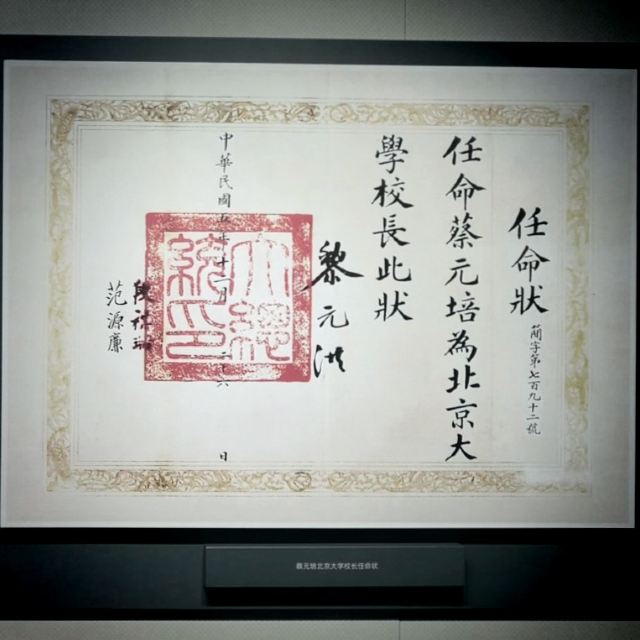 任命狀
簡字第七百九十二號
任命蔡元培為北京大
學校長此狀
黎元洪
大總統印
中華民國五年十二月二十六日
段祺瑞
范源廉
蔡元培北京大学校长任命状